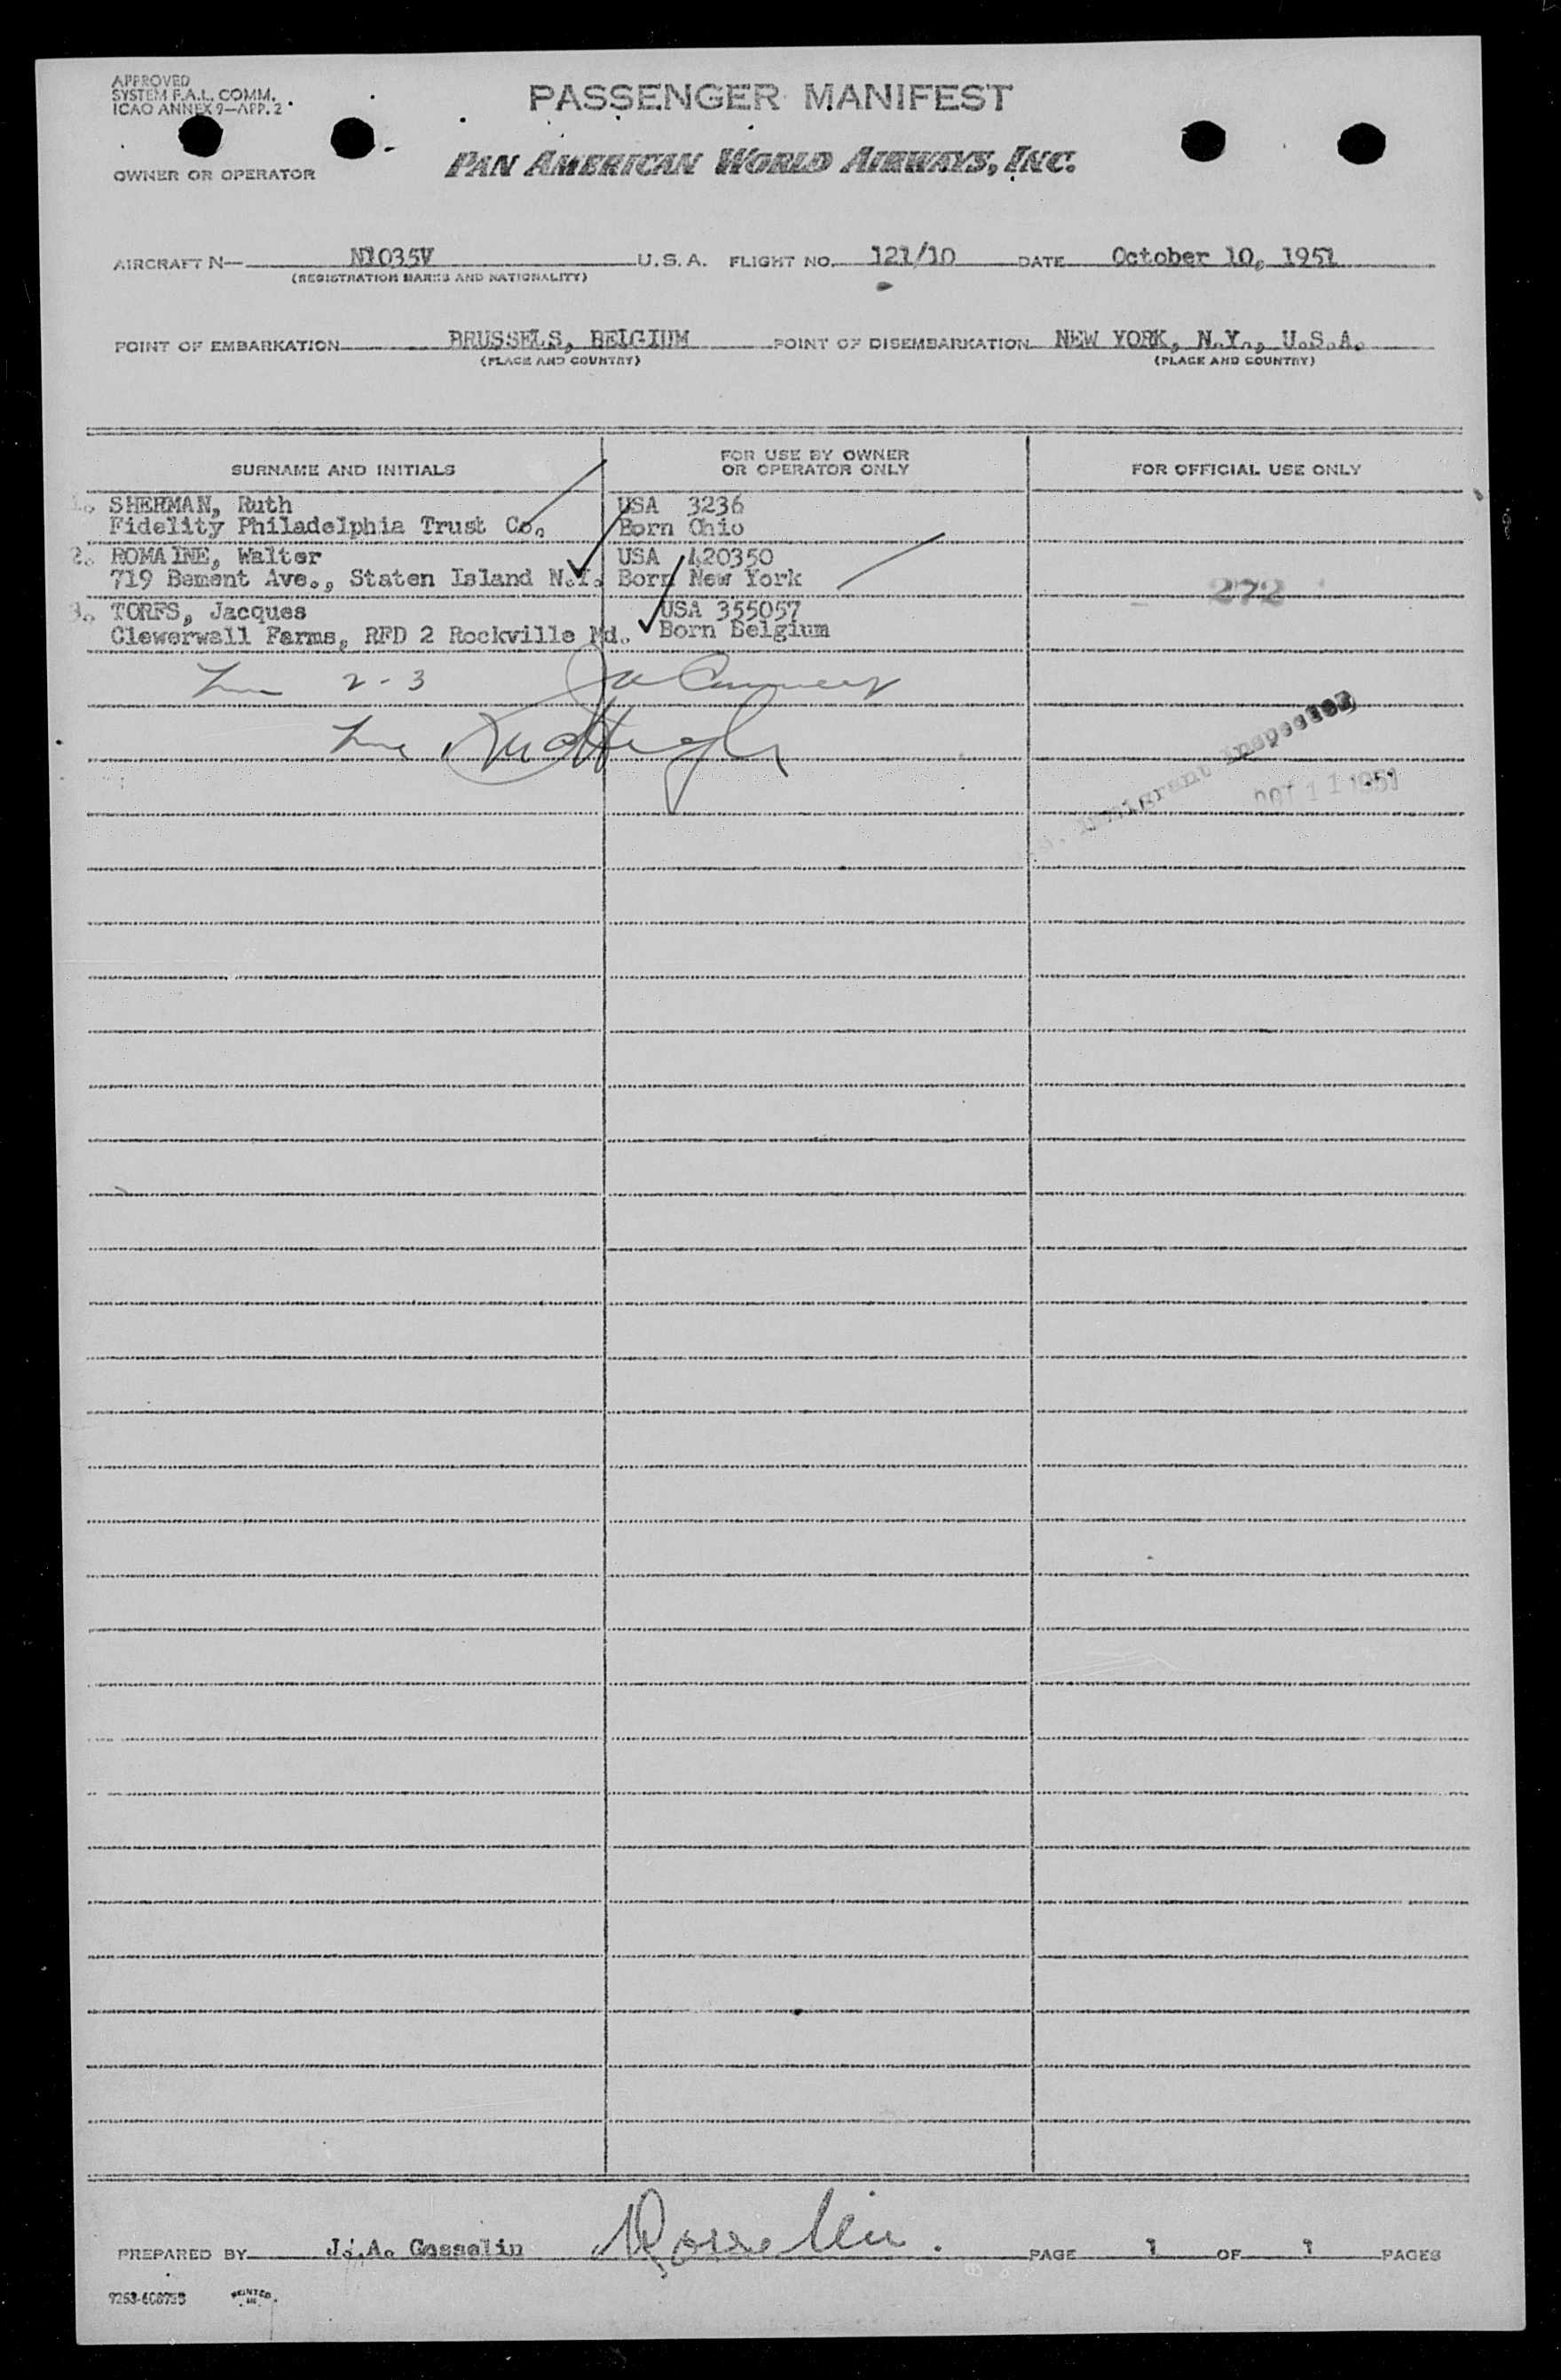 APPROVED
SYSTEM F.A.L. COMM.
ICAO ANNEX 9—APP. 2
PASSENGER MANIFEST
OWNER OR OPERATOR
PAN AMERICAN WORLD AIRWAYS, INC.
AIRCRAFT N— N1035V U.S.A. FLIGHT NO. 121/10 DATE October 10, 1951
(REGISTRATION MARKS AND NATIONALITY)
POINT OF EMBARKATION BRUSSELS, BELGIUM POINT OF DISEMBARKATION NEW YORK, N.Y., U.S.A.
(PLACE AND COUNTRY) (PLACE AND COUNTRY)
SURNAME AND INITIALS FOR USE BY OWNER OR OPERATOR ONLY FOR OFFICIAL USE ONLY
1. SHERMAN, Ruth USA 3236
Fidelity Philadelphia Trust Co. Born Ohio
2. ROMAINE, Walter USA 420350
719 Bement Ave., Staten Island N.Y. Born New York
272
3. TORFS, Jacques USA 355057
Clewerwall Farms, RFD 2 Rockville Md. Born Belgium
2-3
Immigrant Inspector
OCT 11 1951
PREPARED BY J.A. Gosselin PAGE 1 OF 1 PAGES
PRINTED